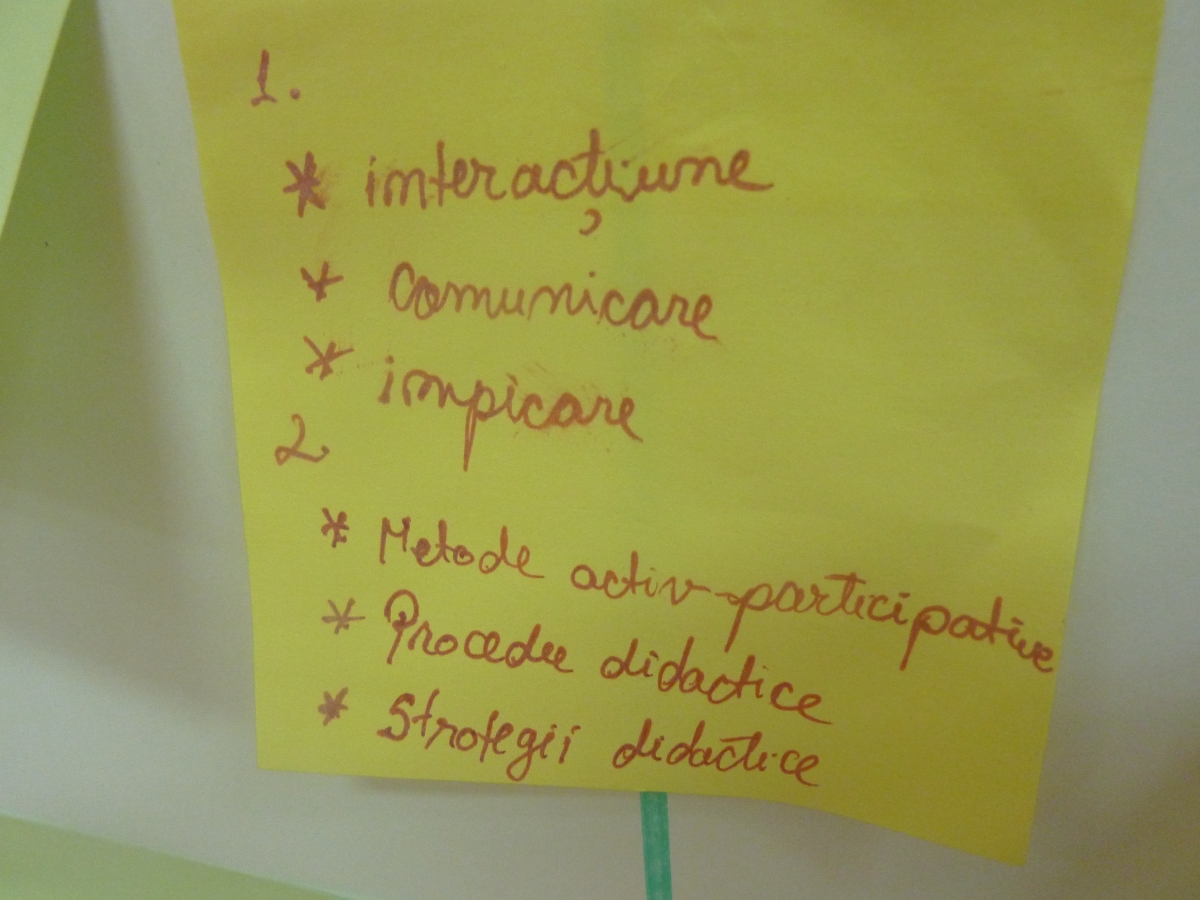 1.
* interacțiune
* Comunicare
* impicare
2.
* Metode activ-participative
* Procedee didactice
* Strategii didactice